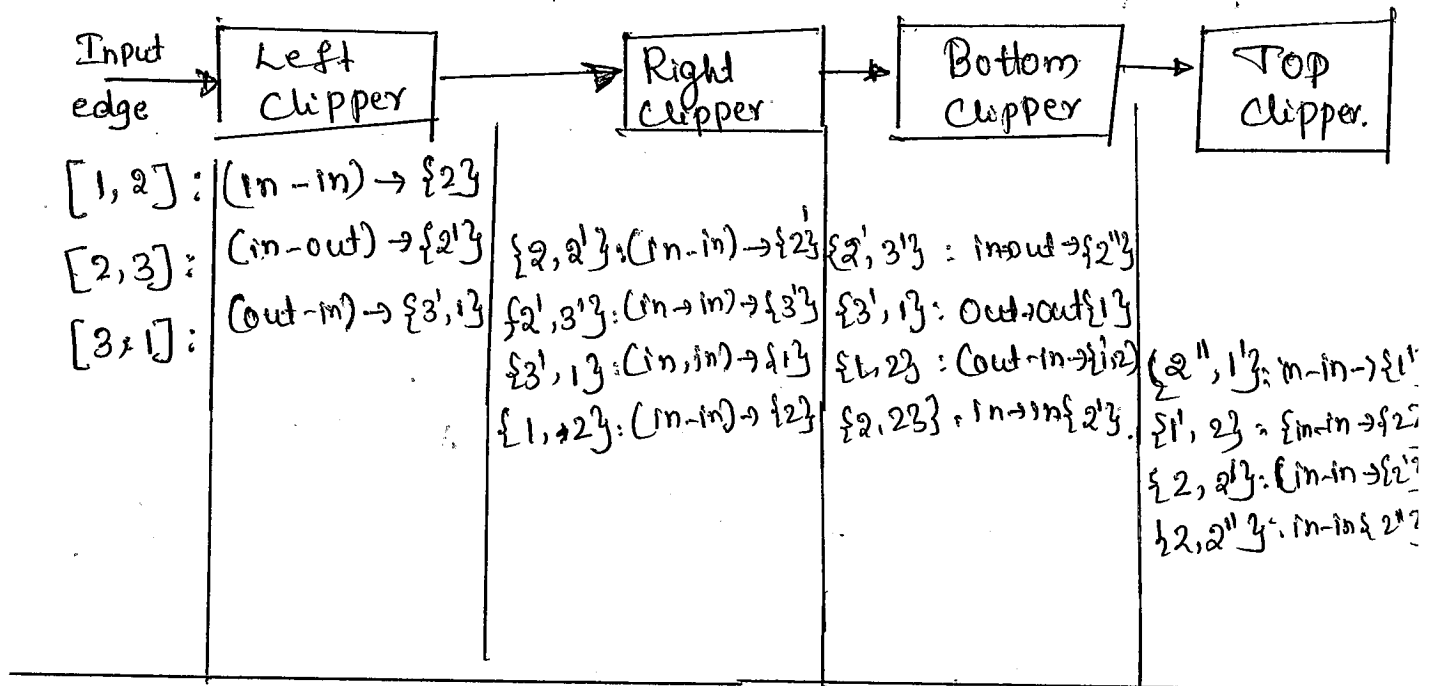 Input edge
Left Clipper
Right Clipper
Bottom Clipper
Top Clipper.
[1, 2] :
[2, 3] :
[3, 1] :
(in - in) → {2}
(in-out) → {2'}
(out-in) → {3', 1}
{2, 2'} : (in-in) → {2'}
{2', 3'} : (in → in) → {3'}
{3', 1} : (in, in) → {1}
{1, 2} : (in-in) → {2}
{2', 3'} : in→out → {2"}
{3', 1} : out→out {1}
{1, 2} : (out-in → {1', 2}
{2, 23} : in→in {2'}.
{2", 1'} : in-in → {1'
{1', 2} : {in-in → {2}
{2, 2'} : (in-in → {2'}
{2, 2"} : in-in {2"}